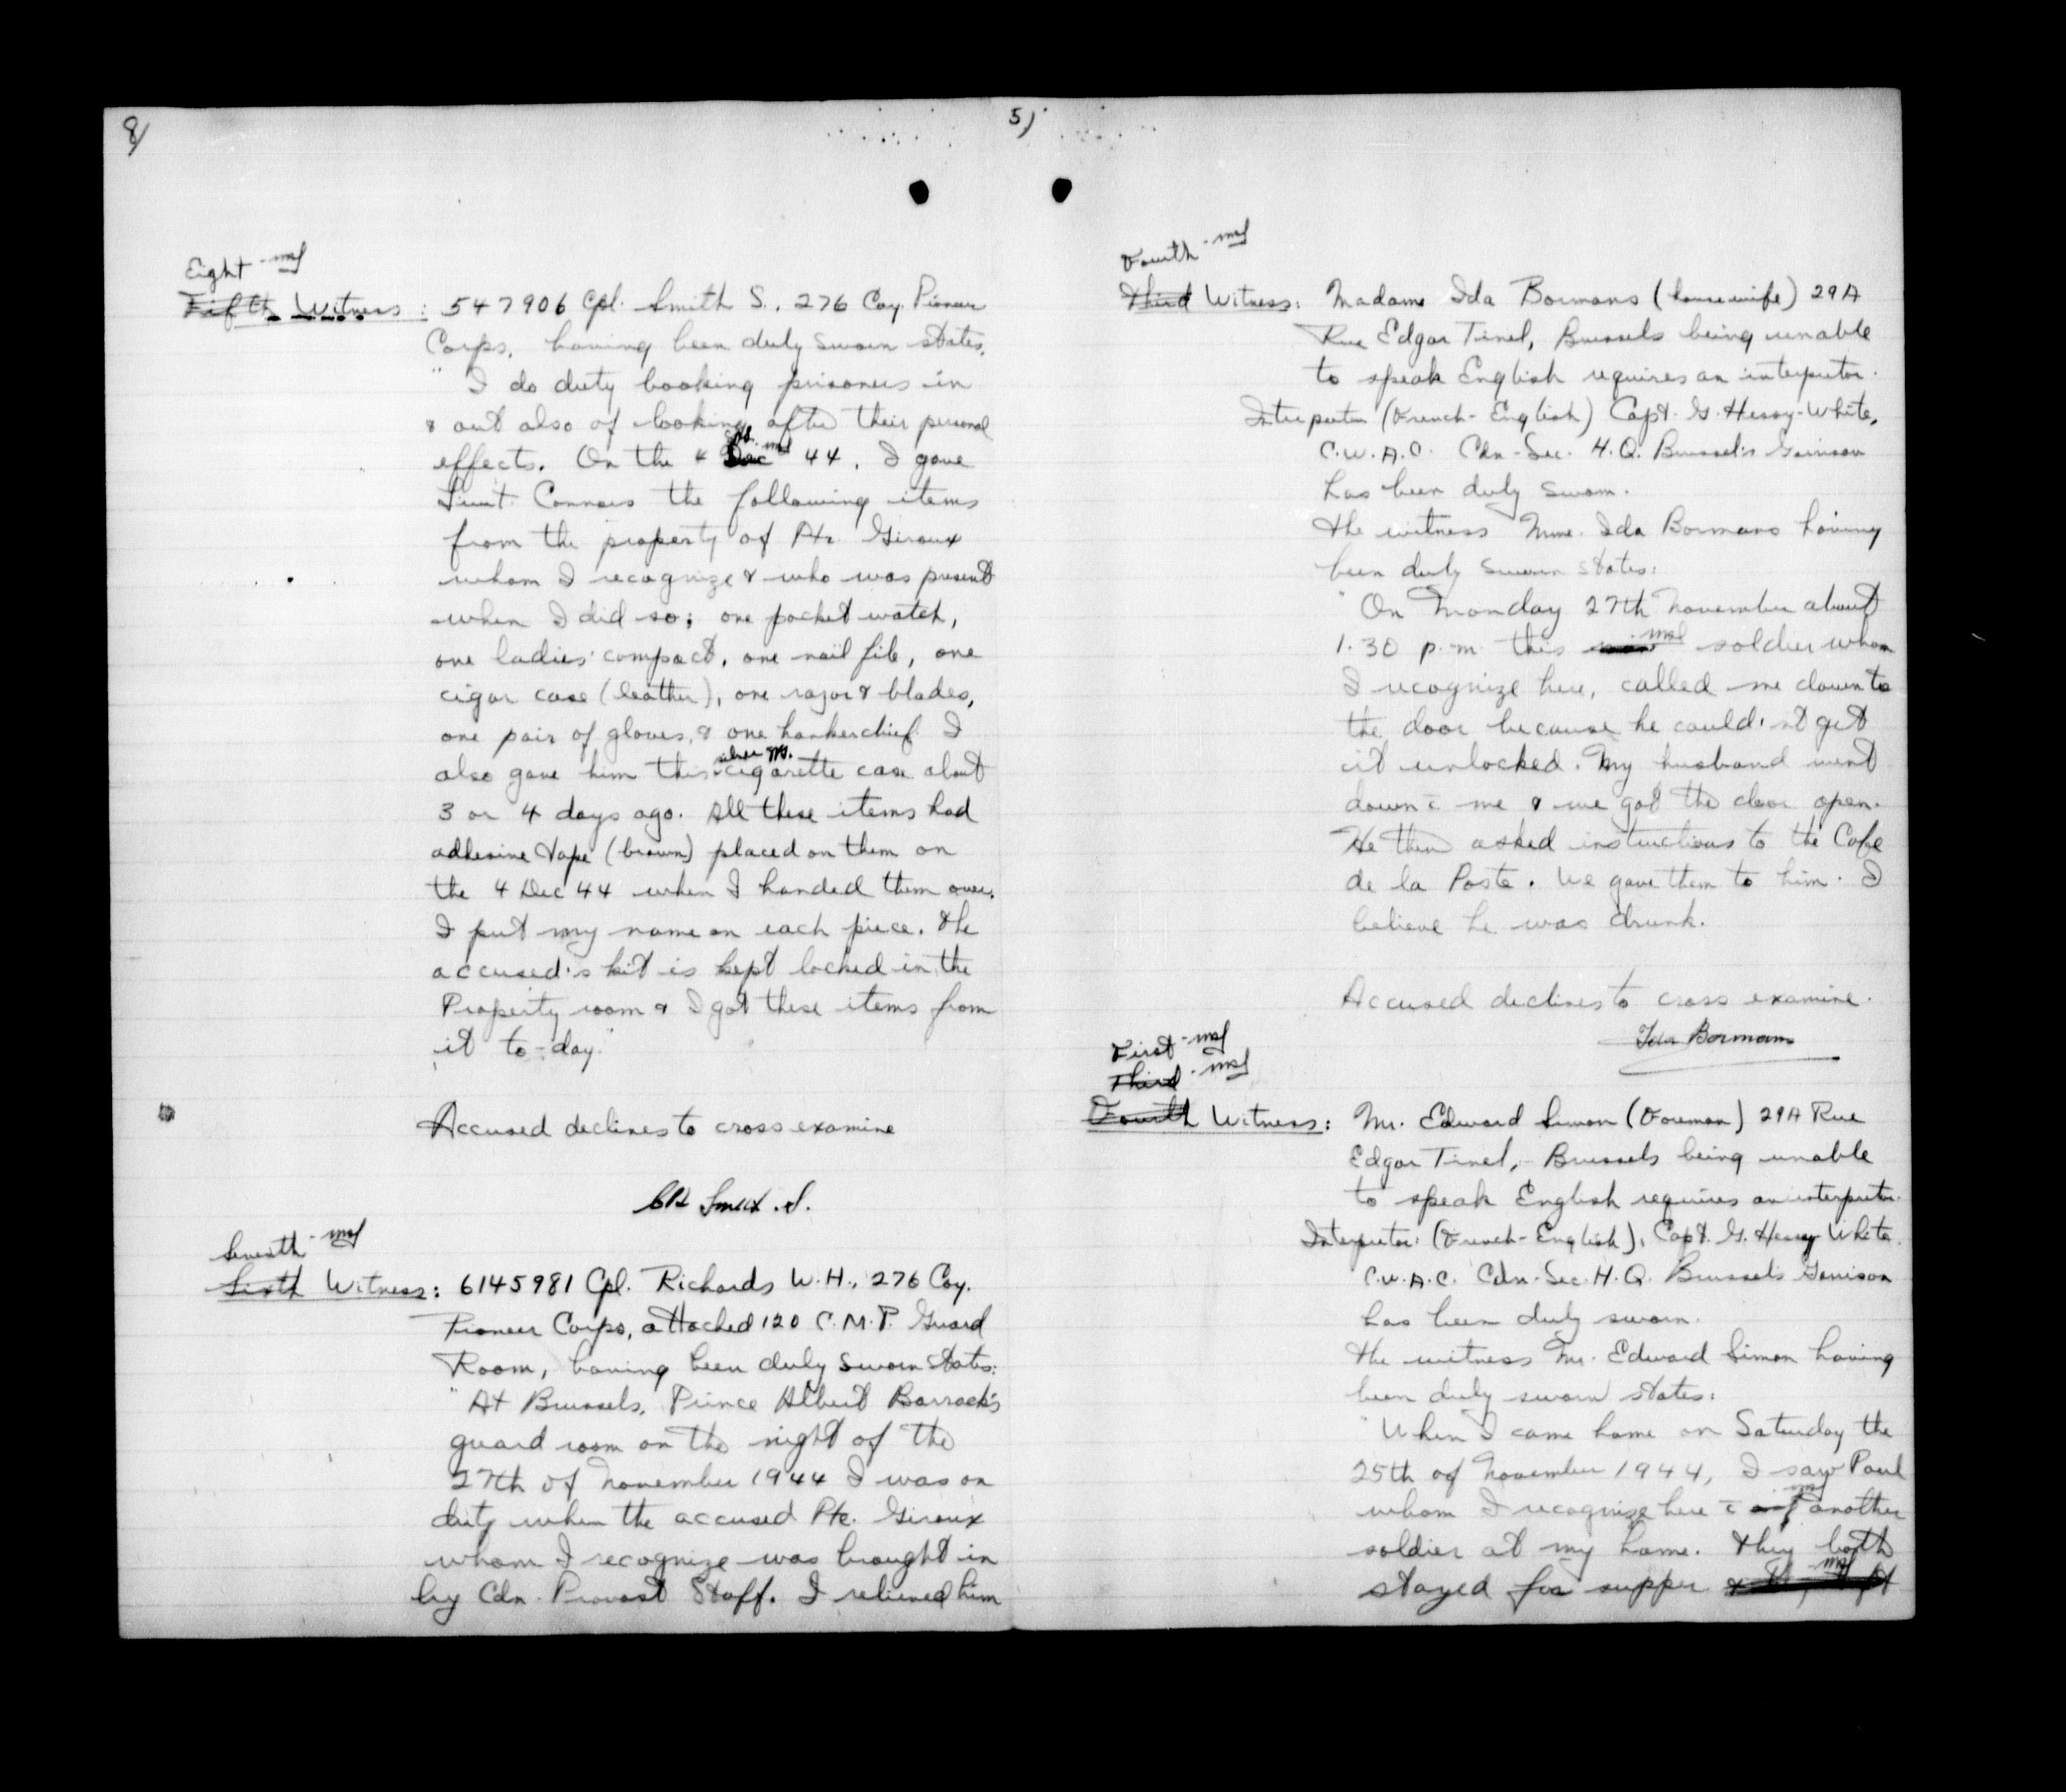 8/
Eight - msf
Fifth Witness : 547906 Cpl. Smith S., 276 Coy. Pioneer
Corps, having been duly sworn states,
" I do duty booking prisoners in
& out also of looking after their personal
effects. On the 4 Dec 44, I gave
Lieut. Connors the following items
from the property of Pte. Giroux
whom I recognize & who was present
when I did so; one pocket watch,
one ladies' compact, one nail file, one
cigar case (leather), one razor & blades,
one pair of gloves, & one hankerchief. I
also gave him this silver cigarette case about
3 or 4 days ago. All these items had
adhesive tape (brown) placed on them on
the 4 Dec 44 when I handed them over.
I put my name on each piece. The
accused's kit is kept locked in the
Property room & I got these items from
it to-day."
Accused declines to cross examine
Cpl Smith .S.
Seventh - msf
Sixth Witness: 6145981 Cpl. Richards W.H., 276 Coy.
Pioneer Corps, attached 120 C.M.P. Guard
Room, having been duly sworn states:
" At Brussels, Prince Albert Barrack's
guard room on the night of the
27th of November 1944 I was on
duty when the accused Pte. Giroux
whom I recognize was brought in
by Cdn. Provost Staff. I relieved him
5)
Fourth - msf
Third Witness: Madame Ida Bormans (housewife) 29A
Rue Edgar Tinel, Brussels being unable
to speak English requires an interpretor.
Interpretor (French-English) Capt. G. Hessy-White,
C.W.A.C. Cdn-Sec. H.Q. Brussel's Garrison
has been duly sworn.
The witness Mme. Ida Bormans having
been duly sworn states:
" On Monday 27th November about
1.30 p.m. this msf soldier whom
I recognize here, called me down to
the door because he could'nt get
it unlocked. My husband went
down c̄ me & we got the door open.
He then asked instructions to the Cafe
de la Poste. We gave them to him. I
believe he was drunk.
Accused declines to cross examine.
Ida Bormans
First - msf
Third - msf
Fourth Witness: Mr. Edward Simon (Foreman) 29A Rue
Edgar Tinel, Brussels being unable
to speak English requires an interpretor.
Interpretor: (French-English), Capt. G. Hessy White.
C.W.A.C. Cdn. Sec. H.Q. Brussel's Garrison
has been duly sworn.
The witness Mr. Edward Simon having
been duly sworn states:
" When I came home on Saturday the
25th of November 1944, I saw Paul
whom I recognize here c̄ msf another
soldier at my home. They both
stayed for supper msf